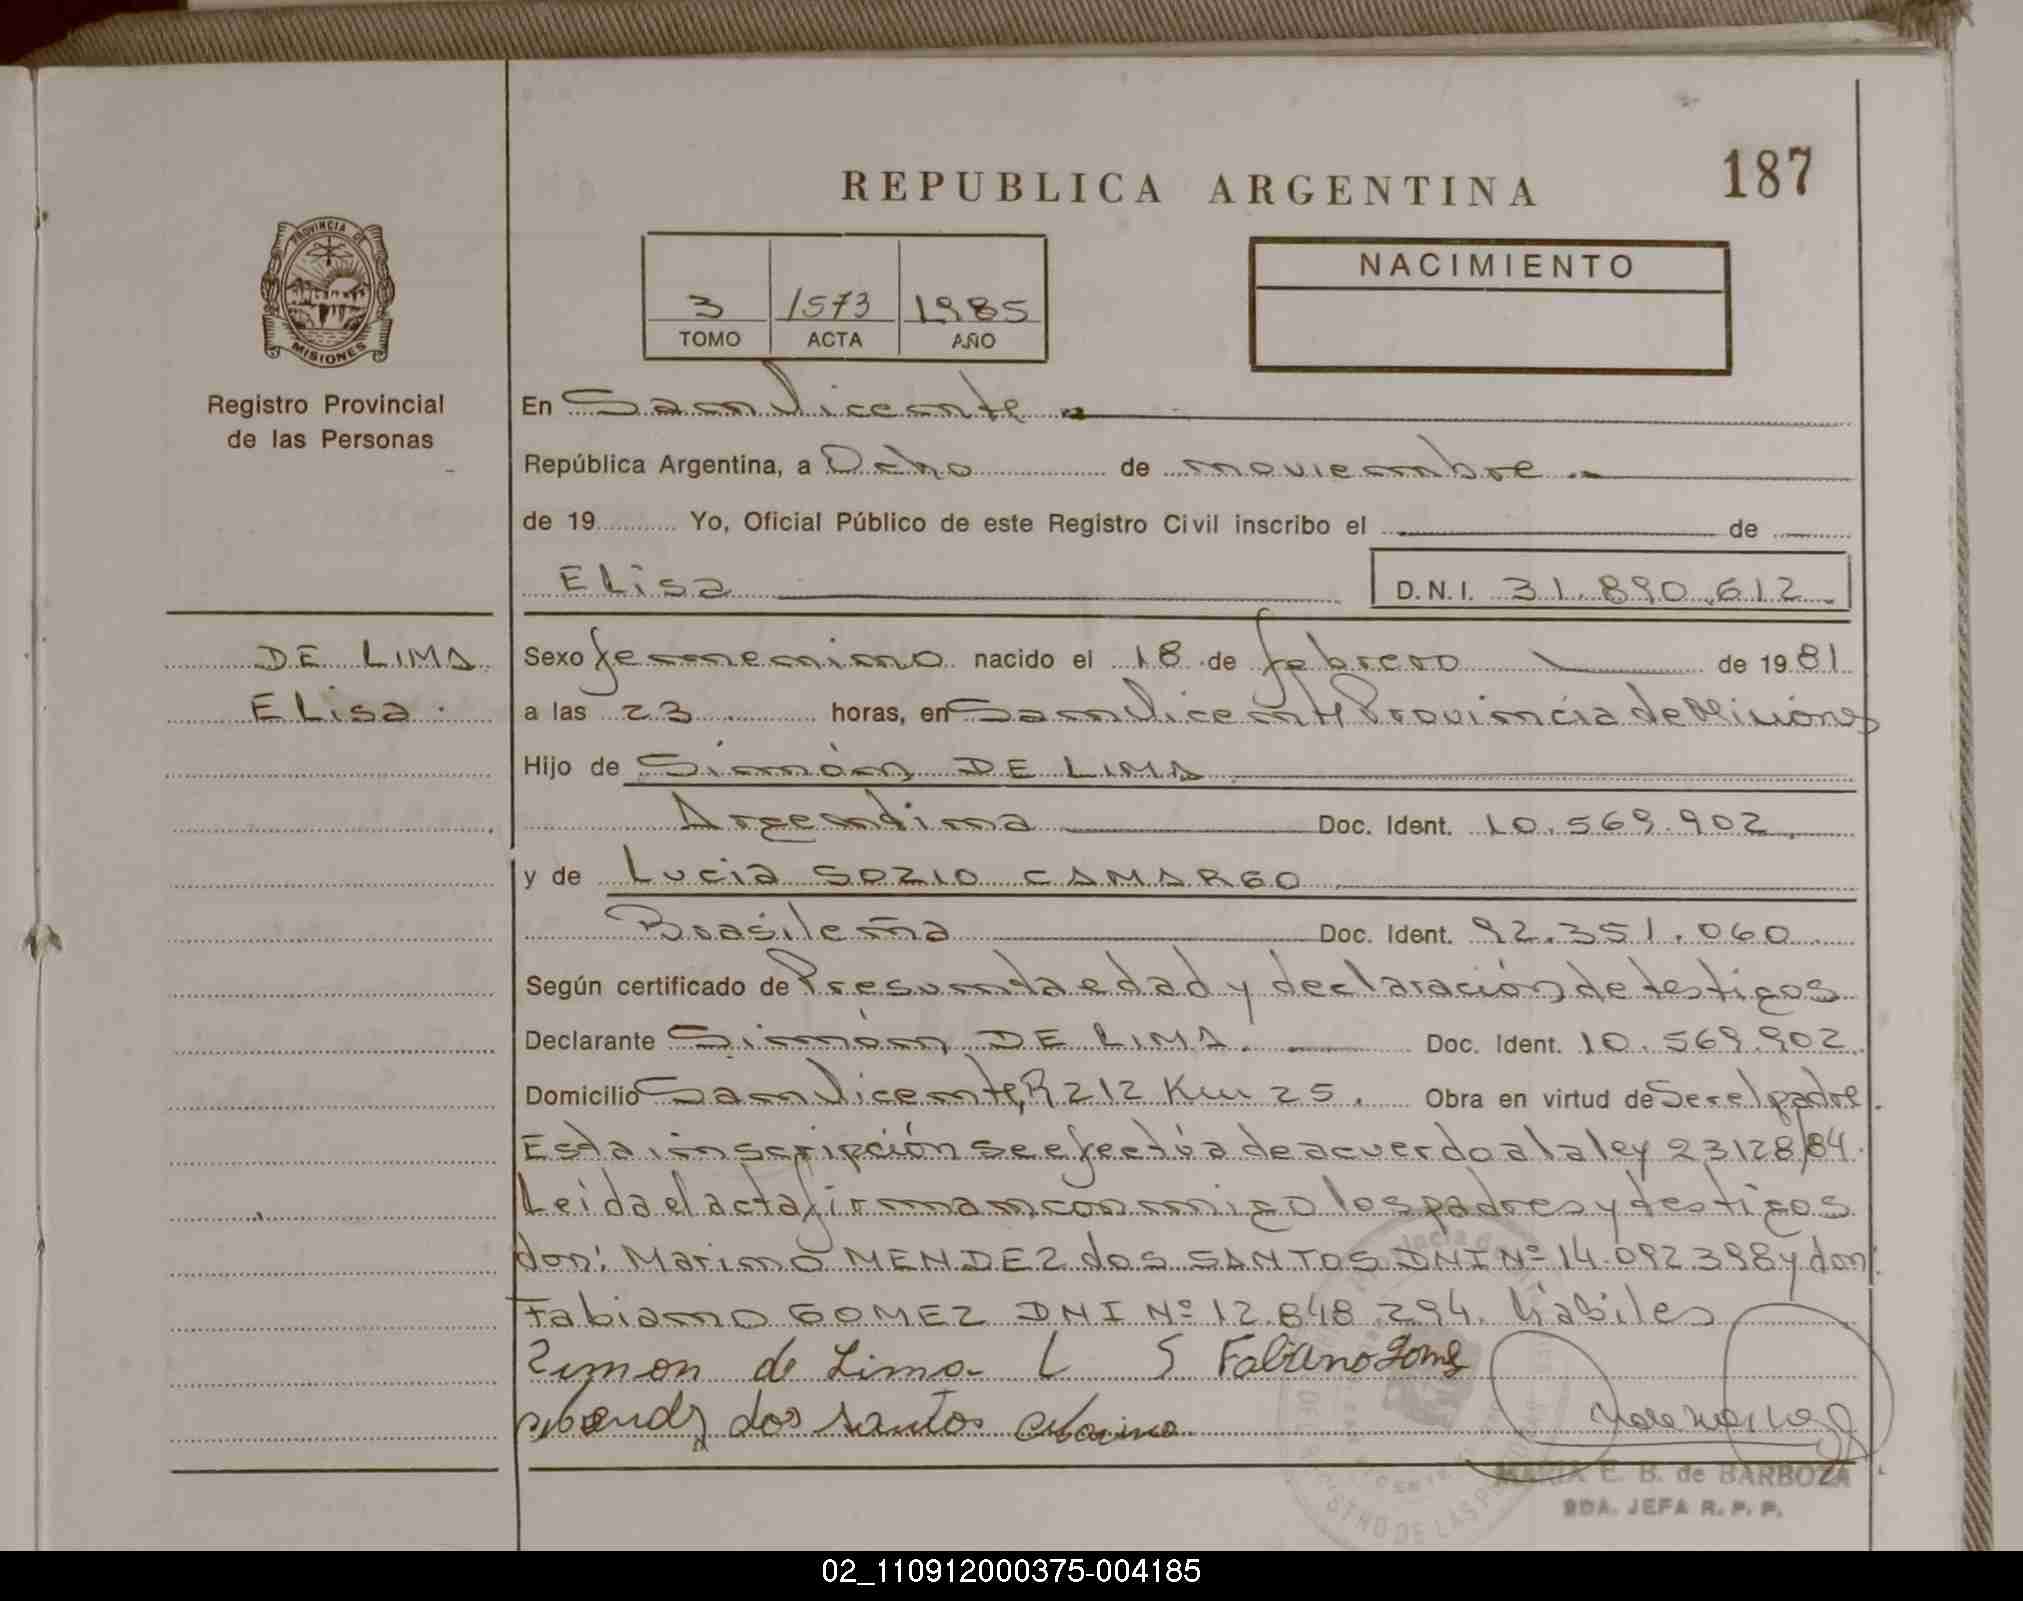 187
REPUBLICA ARGENTINA
PROVINCIA DE
MISIONES
3 1573 1985
TOMO ACTA AÑO
NACIMIENTO
Registro Provincial
de las Personas
En San Vicente
República Argentina, a Ocho de noviembre
de 19 Yo, Oficial Público de este Registro Civil inscribo el de
Elisa D.N.I. 31.890.612
DE LIMA
Elisa
Sexo femenino nacido el 18 de febrero de 1981
a las 23 horas, en San Vicente Provincia de Misiones
Hijo de Simón DE LIMA
Argentina Doc. Ident. 10.569.902
y de Lucia SOZIO CAMARGO
Brasileña Doc. Ident. 92.351.060
Según certificado de Presunta edad y declaración de testigos
Declarante Simón DE LIMA. Doc. Ident. 10.569.902
Domicilio San Vicente, R 212 Km 25. Obra en virtud de Ser el padre.
Esta inscripción se efectúa de acuerdo a la ley 23128/84.
Leida el acta firman conmigo los padres y testigos
don: Marino MENDEZ dos SANTOS DNI Nº 14.092.398 y don:
Fabiano GOMEZ DNI Nº 12.848.294. hábiles
Simon de Lima L S Fabiano Gomez
dos santos
MARIA E. B. de BARBOZA
BDA. JEFA R. P. P.
02_110912000375-004185